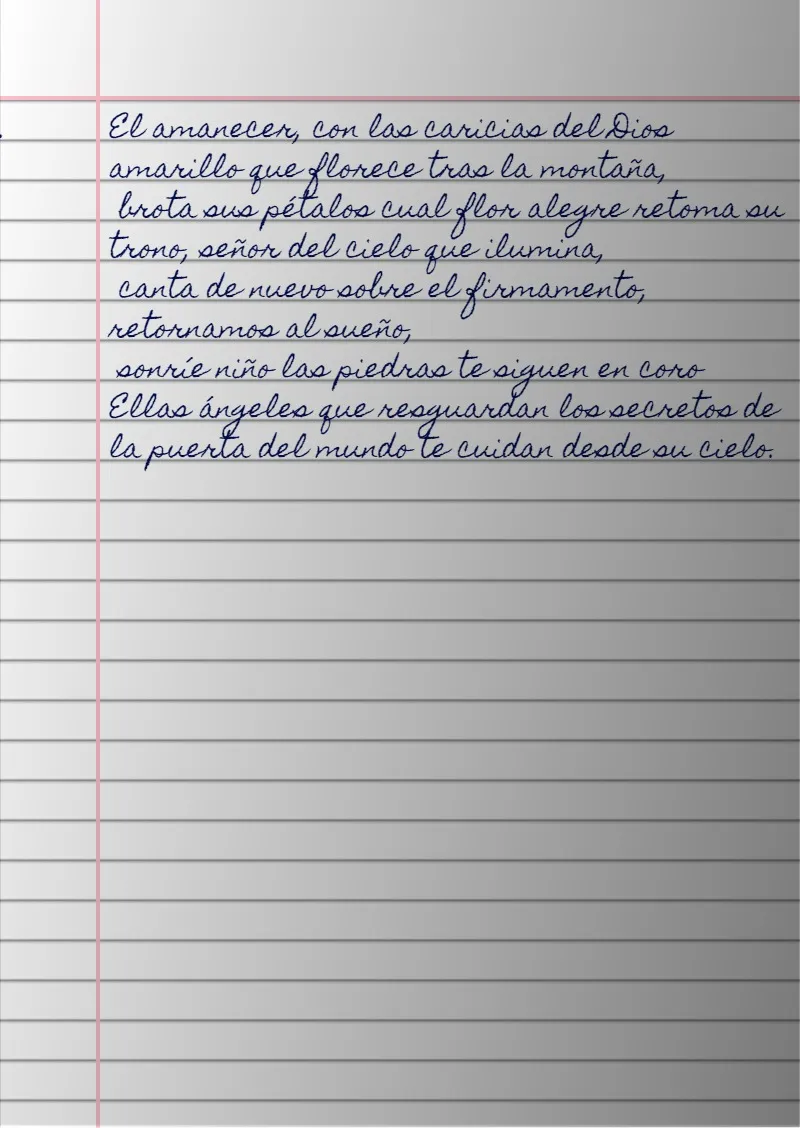 El amanecer, con las caricias del Dios
amarillo que florece tras la montaña,
brota sus pétalos cual flor alegre retoma su
trono, señor del cielo que ilumina,
canta de nuevo sobre el firmamento,
retornamos al sueño,
sonríe niño las piedras te siguen en coro
Ellas ángeles que resguardan los secretos de
la puerta del mundo te cuidan desde su cielo.